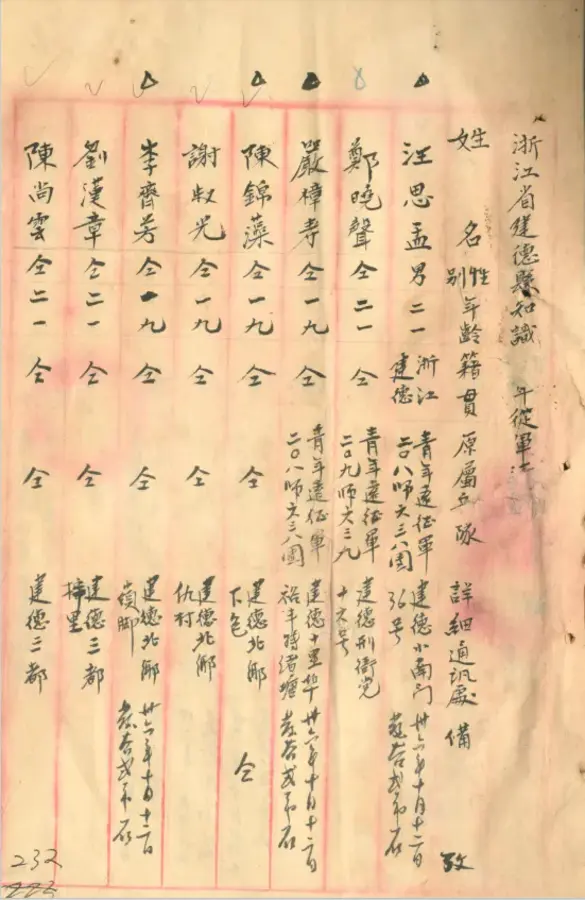 浙江省建德縣知識 年從軍
姓名 性別 年齡 籍貫 原屬部隊 詳細通訊處 備攷
汪思孟 男 二一 浙江建德 青年遠征軍二〇八師六三八團 建德小南门36号 卅六年十月十二日
鄭曉聲 仝 二一 仝 青年遠征軍二〇九師六三九 建德十六号
嚴樟寿 仝 一九 仝 青年遠征軍二〇八師六三八團 建德十里 裕丰 卅六年十月十二日
陳錦藻 仝 一九 仝 仝 建德北鄉下包 仝
謝叔光 仝 一九 仝 仝 建德北鄉仇村
李齊芳 仝 一九 仝 仝 建德北鄉 卅六年十月十二日
劉漢章 仝 二一 仝 仝 建德三都
陳尚雲 仝 二一 仝 仝 建德三都
232
223